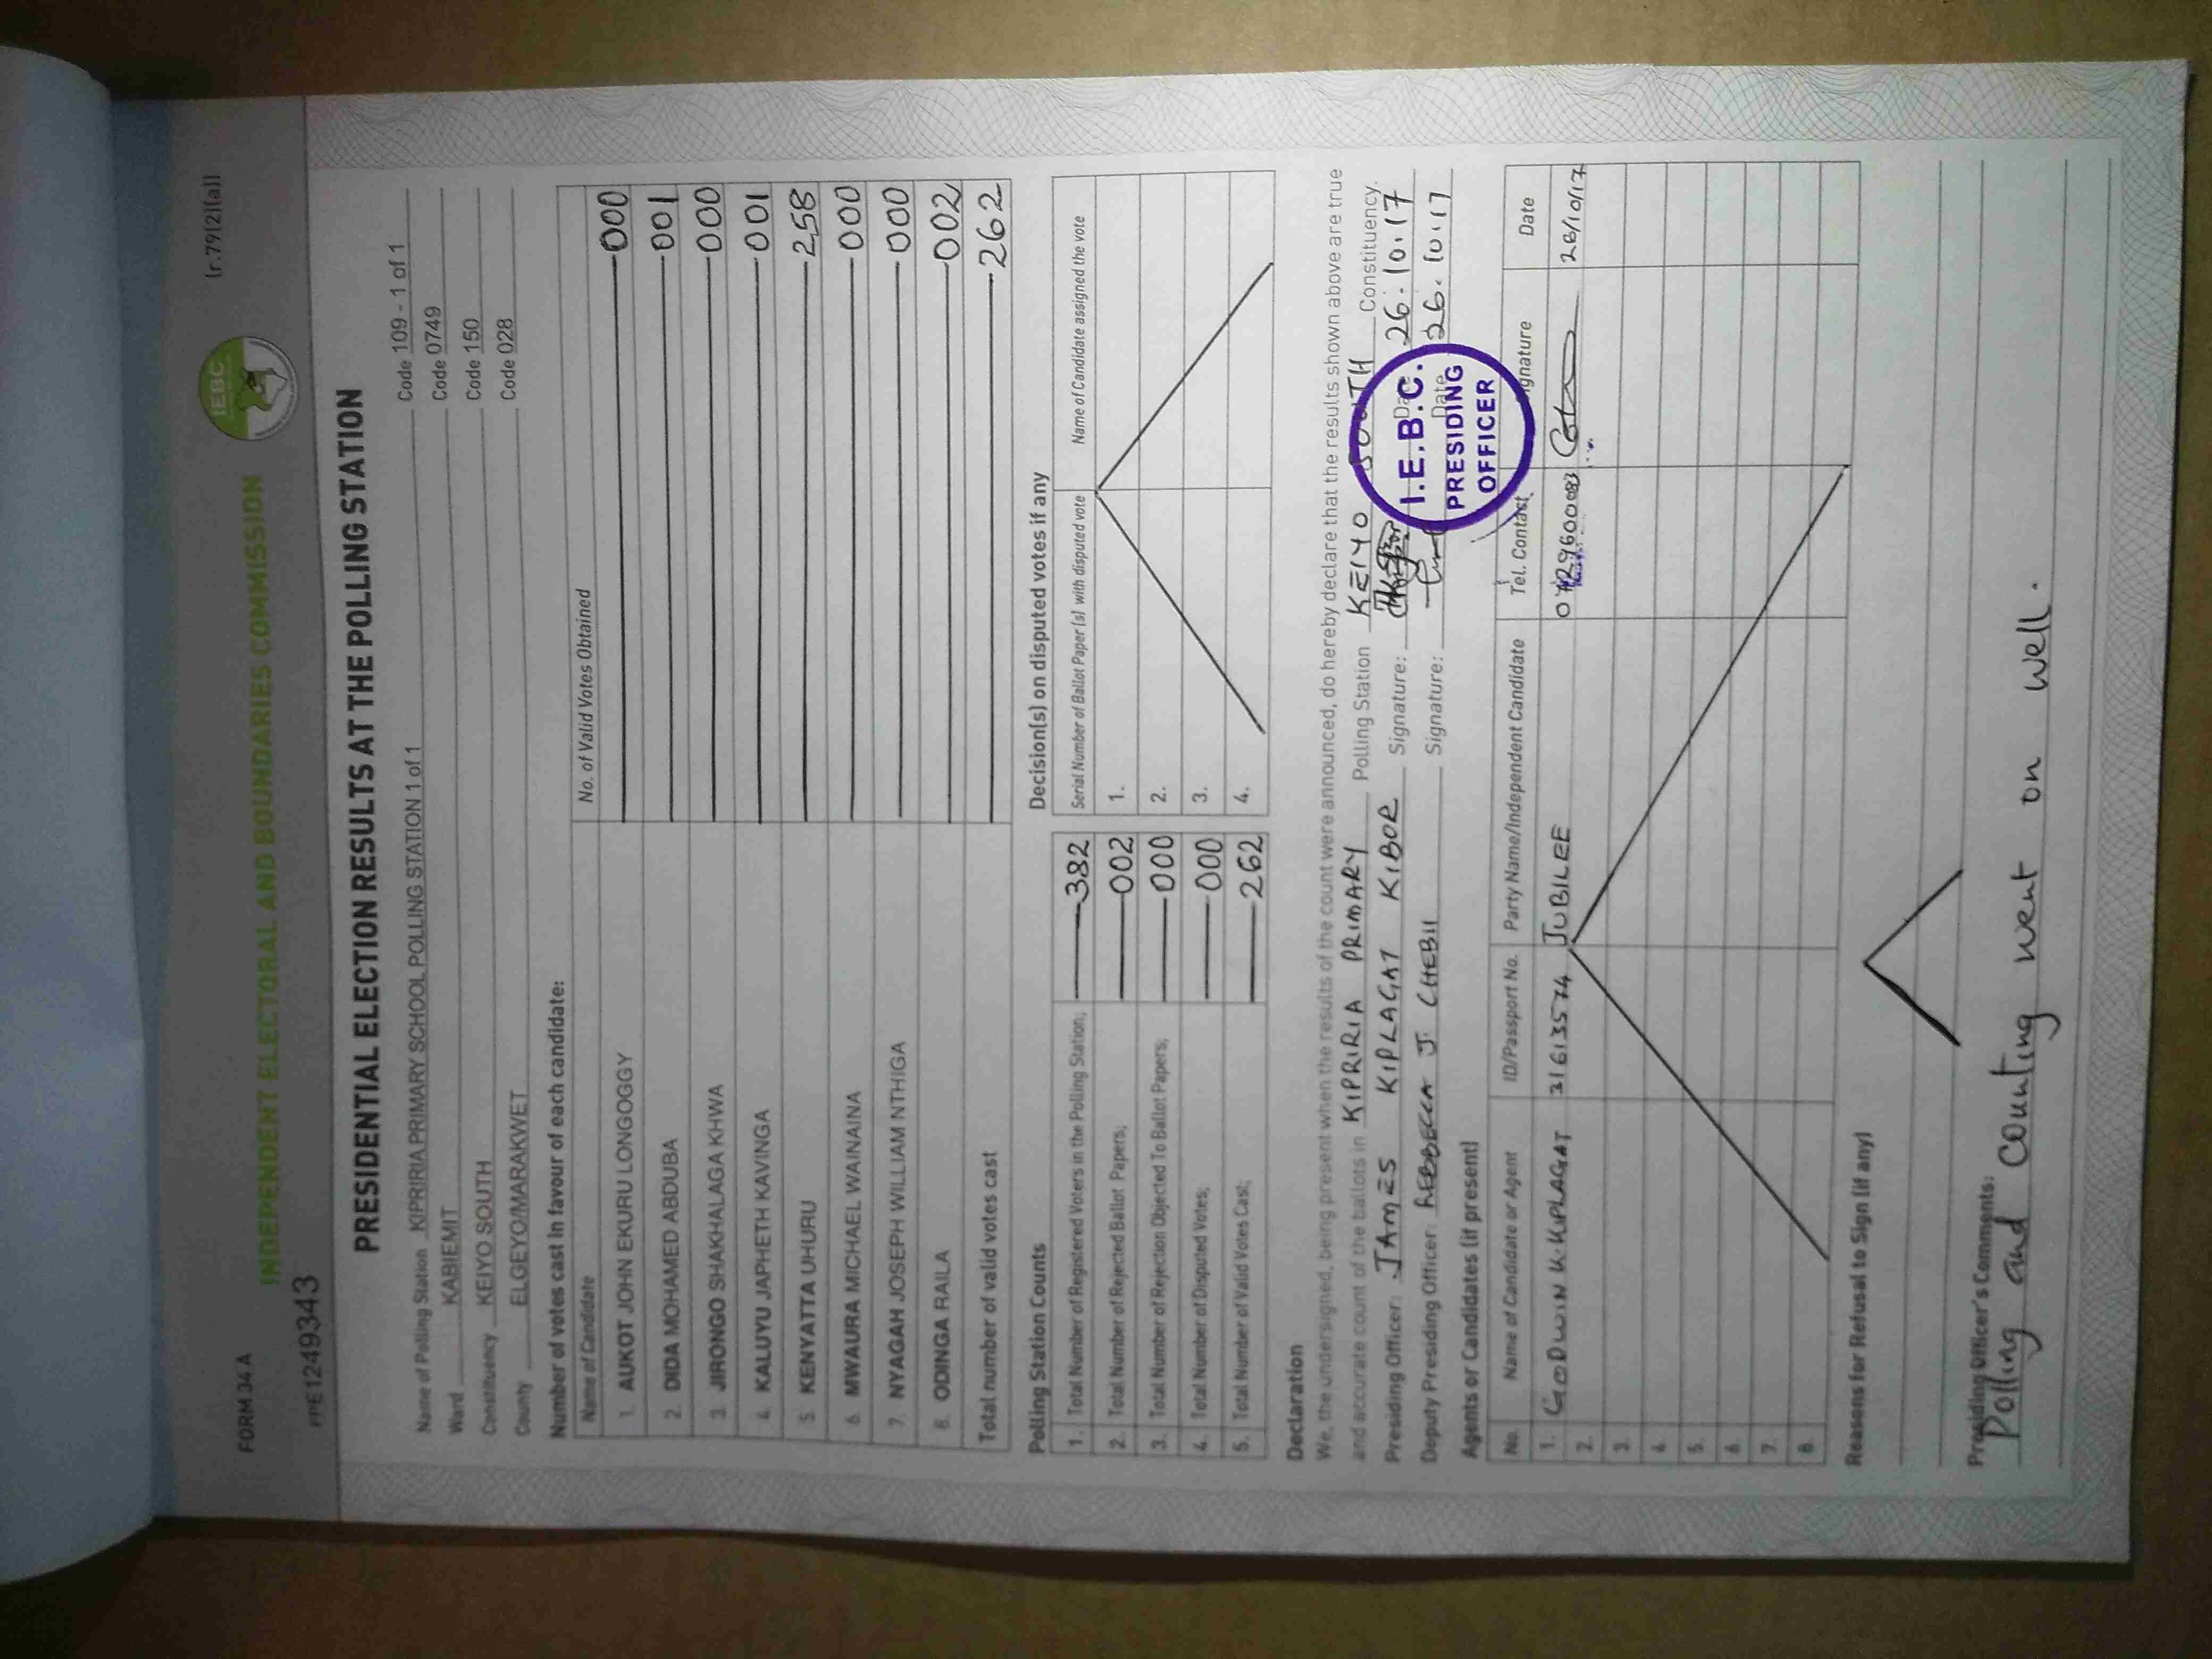 FORM 34 A
(r.79(2)(a))
INDEPENDENT ELECTORAL AND BOUNDARIES COMMISSION
IEBC
1249343
PRESIDENTIAL ELECTION RESULTS AT THE POLLING STATION
Name of Polling Station KIPRIRIA PRIMARY SCHOOL POLLING STATION 1 of 1 Code 109 - 1 of 1
Ward KABIEMIT Code 0749
Constituency KEIYO SOUTH Code 150
County ELGEYO/MARAKWET Code 028
Number of votes cast in favour of each candidate:
Name of Candidate No. of Valid Votes Obtained
1. AUKOT JOHN EKURU LONGOGGY 000
2. DIDA MOHAMED ABDUBA 001
3. JIRONGO SHAKHALAGA KHWA 000
4. KALUYU JAPHETH KAVINGA 001
5. KENYATTA UHURU 258
6. MWAURA MICHAEL WAINAINA 000
7. NYAGAH JOSEPH WILLIAM NTHIGA 000
8. ODINGA RAILA 002
Total number of valid votes cast 262
Polling Station Counts
1. Total Number of Registered Voters in the Polling Station; 382
2. Total Number of Rejected Ballot Papers; 002
3. Total Number of Rejection Objected To Ballot Papers; 000
4. Total Number of Disputed Votes; 000
5. Total Number of Valid Votes Cast; 262
Decision(s) on disputed votes if any
Serial Number of Ballot Paper (s) with disputed vote Name of Candidate assigned the vote
1.
2.
3.
4.
Declaration
We, the undersigned, being present when the results of the count were announced, do hereby declare that the results shown above are true
and accurate count of the ballots in KIPRIRIA PRIMARY Polling Station KEIYO SOUTH Constituency.
Presiding Officer: JAMES KIPLAGAT KIBOR Signature: Date 26.10.17
Deputy Presiding Officer: REBBECCA J. CHEBII Signature: Date 26.10.17
I.E.B.C.
PRESIDING
OFFICER
Agents or Candidates (if present)
No. Name of Candidate or Agent ID/Passport No. Party Name/Independent Candidate Tel. Contact Signature Date
1. GODWIN K. KIPLAGAT 31613574 JUBILEE 26/10/17
2.
3.
4.
5.
6.
7.
8.
Reasons for Refusal to Sign (if any)
Presiding Officer's Comments:
Polling and counting went on well.